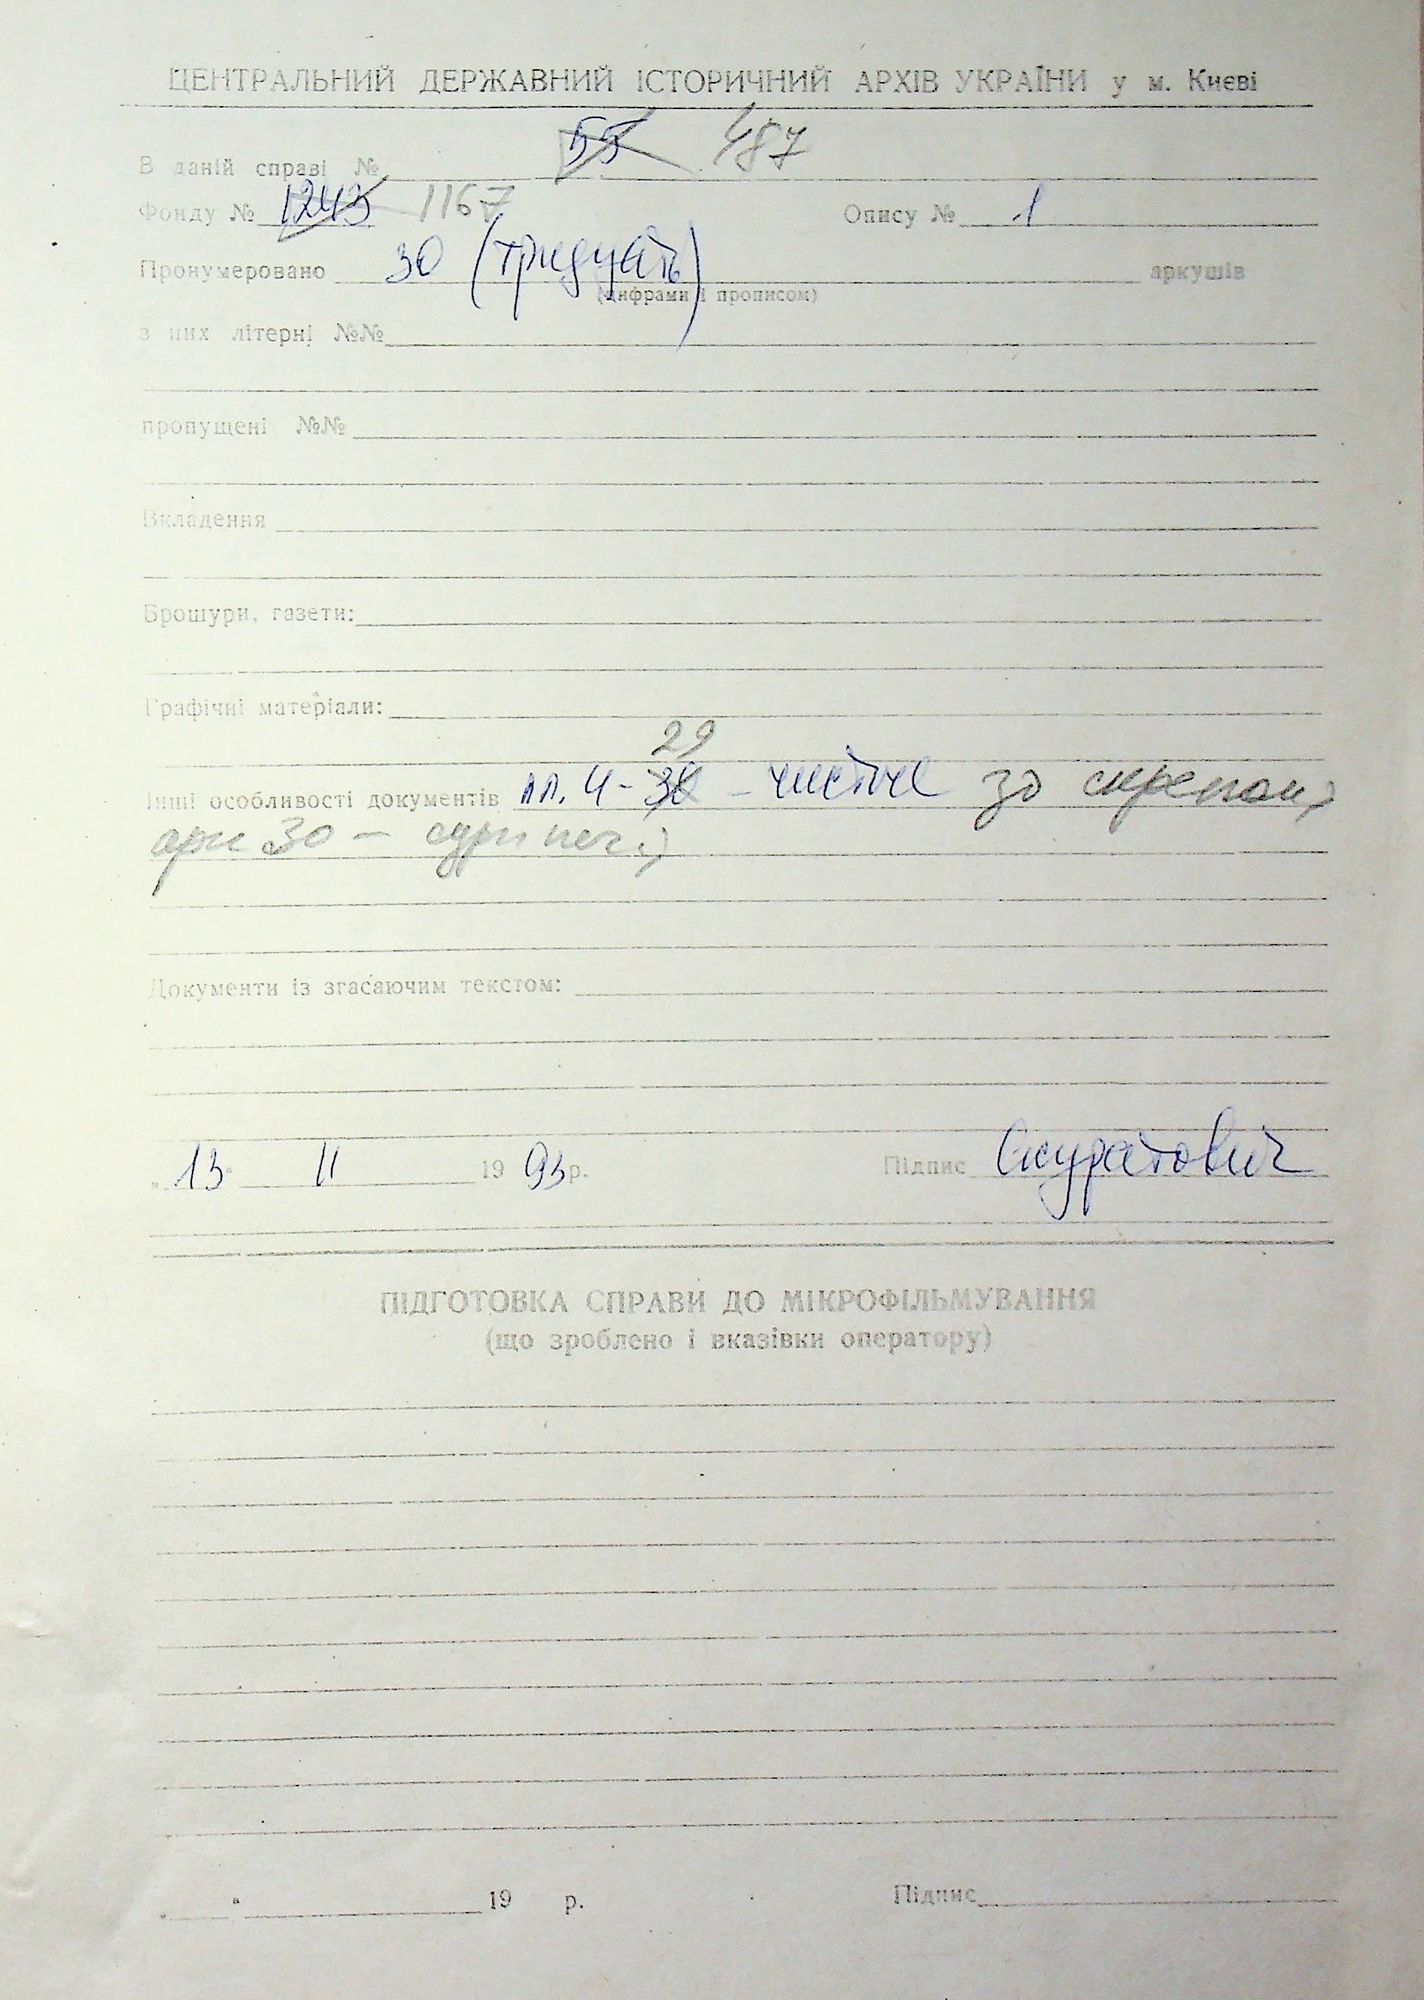 ЦЕНТРАЛЬНИЙ ДЕРЖАВНИЙ ІСТОРИЧНИЙ АРХІВ УКРАЇНИ у м. Києві
В даній справі № 55 487
Фонду № 1243 1167 Опису № 1
Пронумеровано 30 (тридцять) аркушів
(цифрами і прописом)
з них літерні №№
пропущені №№
Вкладення
Брошури, газети:
Графічні матеріали:
29
Інші особливості документів ап. 4 - 30 - чисті зо скрепою;
арк 30 - сург печ.;
Документи із згасаючим текстом:
„13“ II 1993 р. Підпис Скуратович
ПІДГОТОВКА СПРАВИ ДО МІКРОФІЛЬМУВАННЯ
(що зроблено і вказівки оператору)
„ “ 19 р. Підпис